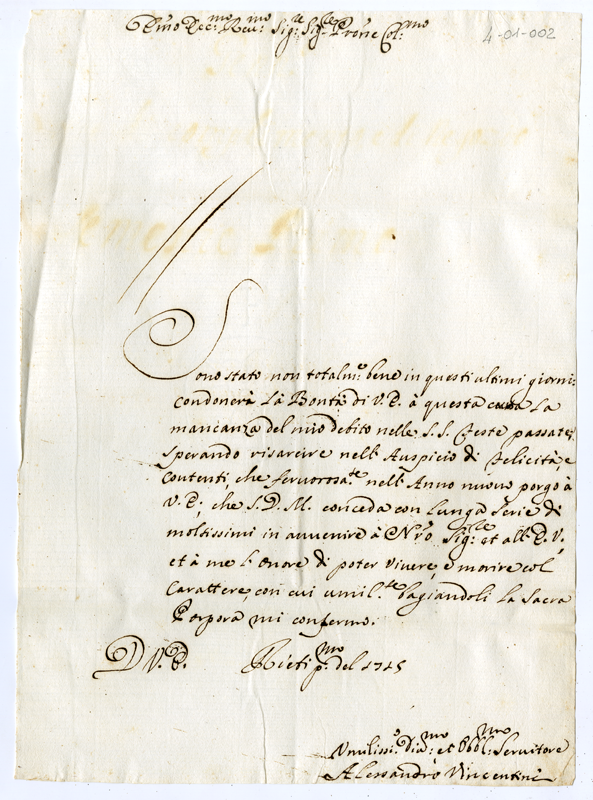 Emo Rev:mo Sig:re Sig:re Prone Col:mo
4-01-002
Sono stato non totalm:e bene in questi ultimi giorni:
condonerà la Bontà di V.E. à questa la
mancanza del mio debito nelle S.S. Feste passate;
sperando risarcire nell'Auspicio di Felicità, e
Contenti, che fervorosa:te nell'Anno nuovo porgo à
V.E; che S.D.M. conceda con lunga serie di
moltissimi in avvenire à Nro Sig:re et all'E.V,
et à me l'onore di poter vivere, e morire col
Carattere, con cui umil:te bagiandoli la Sacra
Porpora mi confermo.
D V.E. Rieti p:mo del 1715
Umiliss:o Div:mo et Obbl:mo Servitore
Alessandro Vincentini